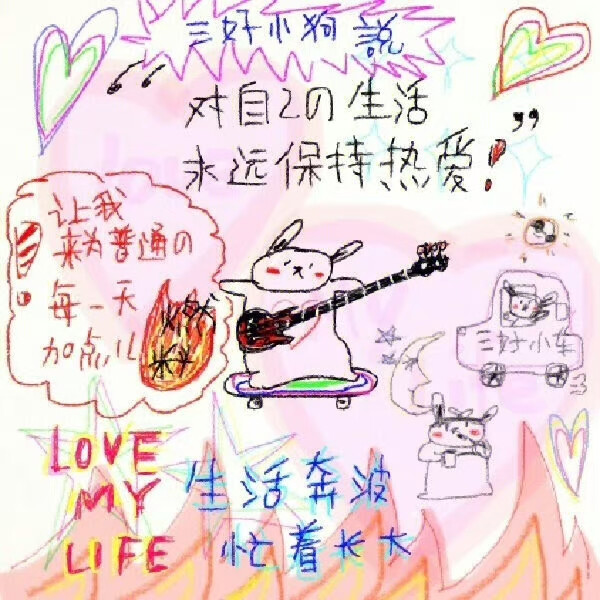 三好小狗 説
“对自己の生活
永远保持热爱!”
让我
来为普通の
每一天
加点儿
燃料
三好小车
LOVE
MY
LIFE
生活奔波
忙着长大